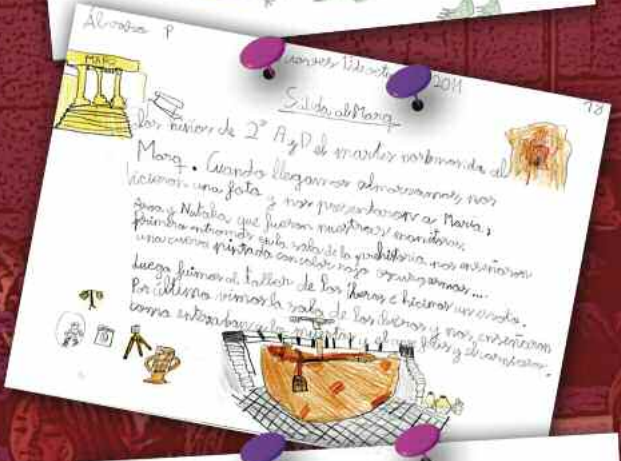 Álvaro P
Jueves 2011
Salida al Marq
MARQ
Los niños de 2º A y D el martes nos hemos ido al
Marq. Cuando llegamos almorzamos, nos
hicieron una foto y nos presentaron a María,
y Natalia que fueron nuestras monitoras,
primero entramos en la sala de la prehistoria, nos enseñaron
una cueva pintada con color rojo oscuro armas...
Luego fuimos al taller de los iberos e hicimos un
Por último vimos la sala de los iberos y nos enseñaron
como enterraban y el